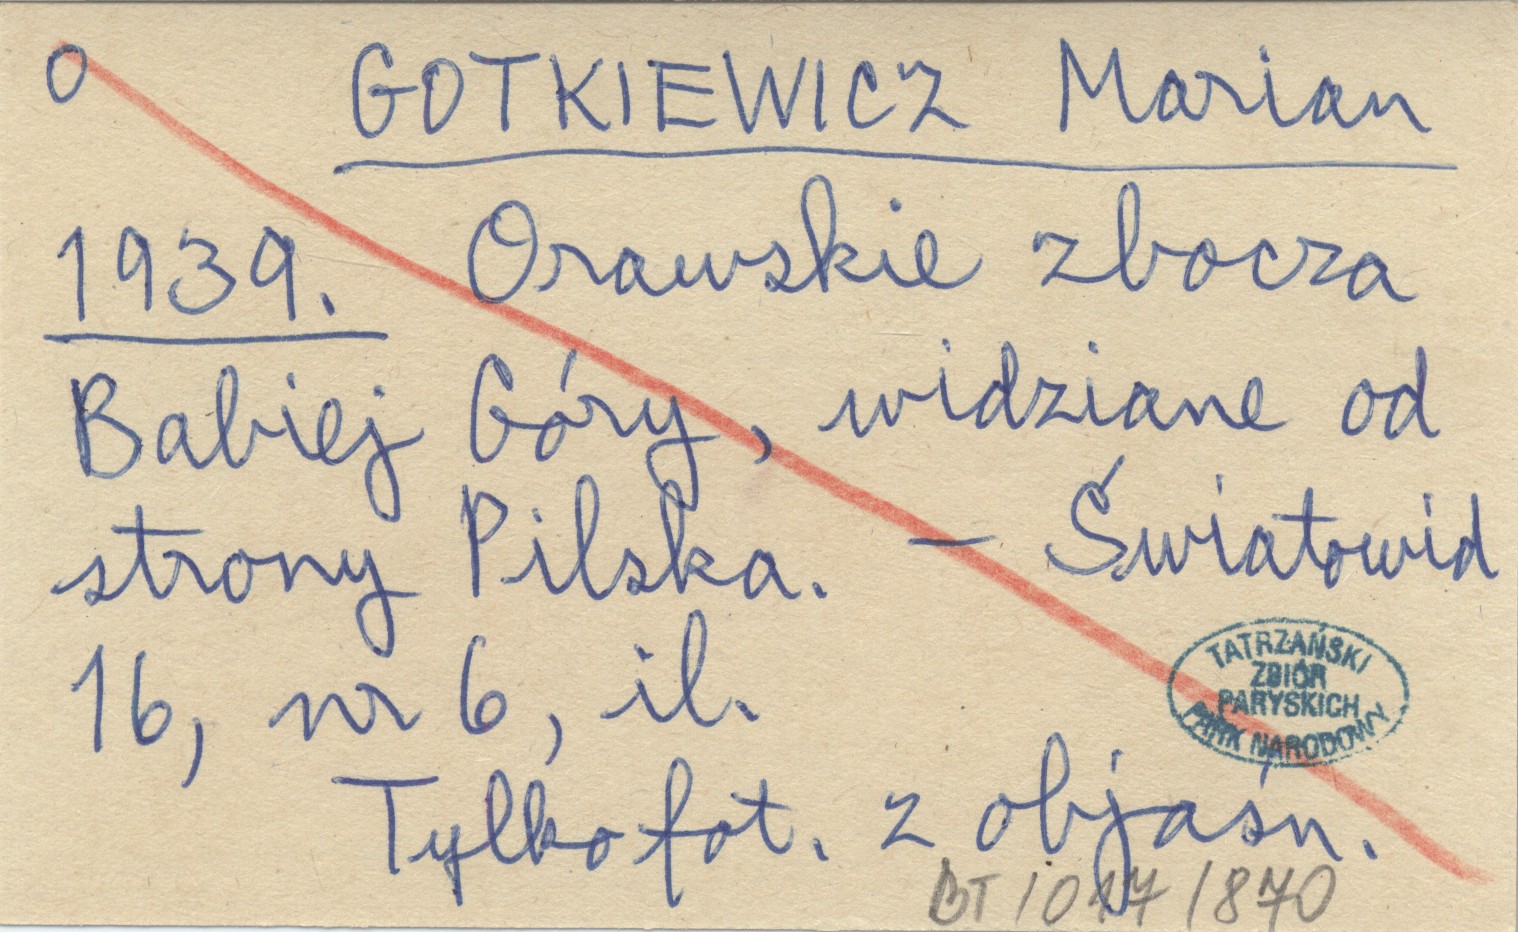 O GOTKIEWICZ Marian
1939. Orawskie zbocza
Babiej Góry, widziane od
strony Pilska. – Światowid
16, nr 6, il.
TATRZAŃSKI
ZBIÓR
PARYSKICH
PARK NARODOWY
Tylko fot. z objaśn.
BT 1047/870